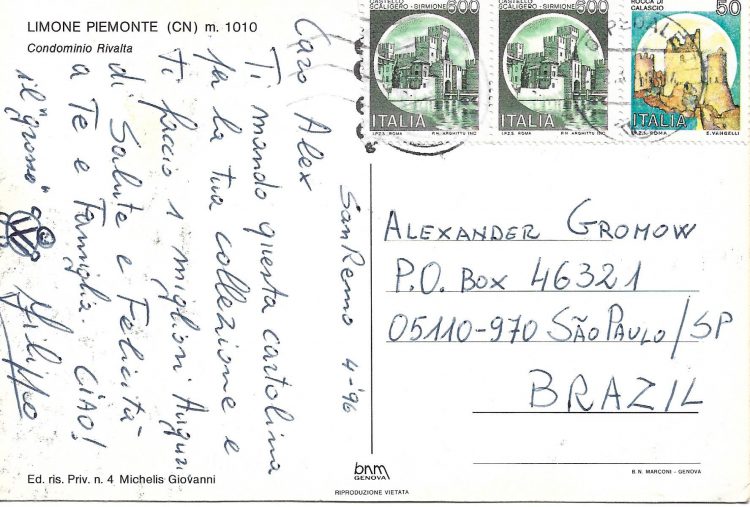 LIMONE PIEMONTE (CN) m. 1010
Condominio Rivalta
CASTELLO
SCALIGERO - SIRMIONE
600
ITALIA
I.P.Z.S. ROMA
P.N. ARGHITTU INC.
CASTELLO
SCALIGERO - SIRMIONE
600
ITALIA
I.P.Z.S. ROMA
P.N. ARGHITTU INC.
ROCCA DI
CALASCIO
50
ITALIA
I.P.Z.S. - ROMA
E. VANGELLI
San Remo 4-'96
Caro Alex
Ti mando questa cartolina
per la tua collezione e
Ti faccio i migliori Auguri
di Salute e Felicità
a Te e Famiglia. CIAO!
il "grosso"
Filippo
ALEXANDER GROMOW
P.O. BOX 46321
05110-970 SÃO PAULO/SP
BRAZIL
Ed. ris. Priv. n. 4 Michelis Giovanni
bnm
GENOVA
RIPRODUZIONE VIETATA
B.N. MARCONI - GENOVA